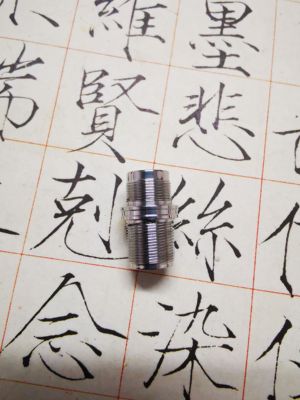 墨悲絲染
維賢剋念